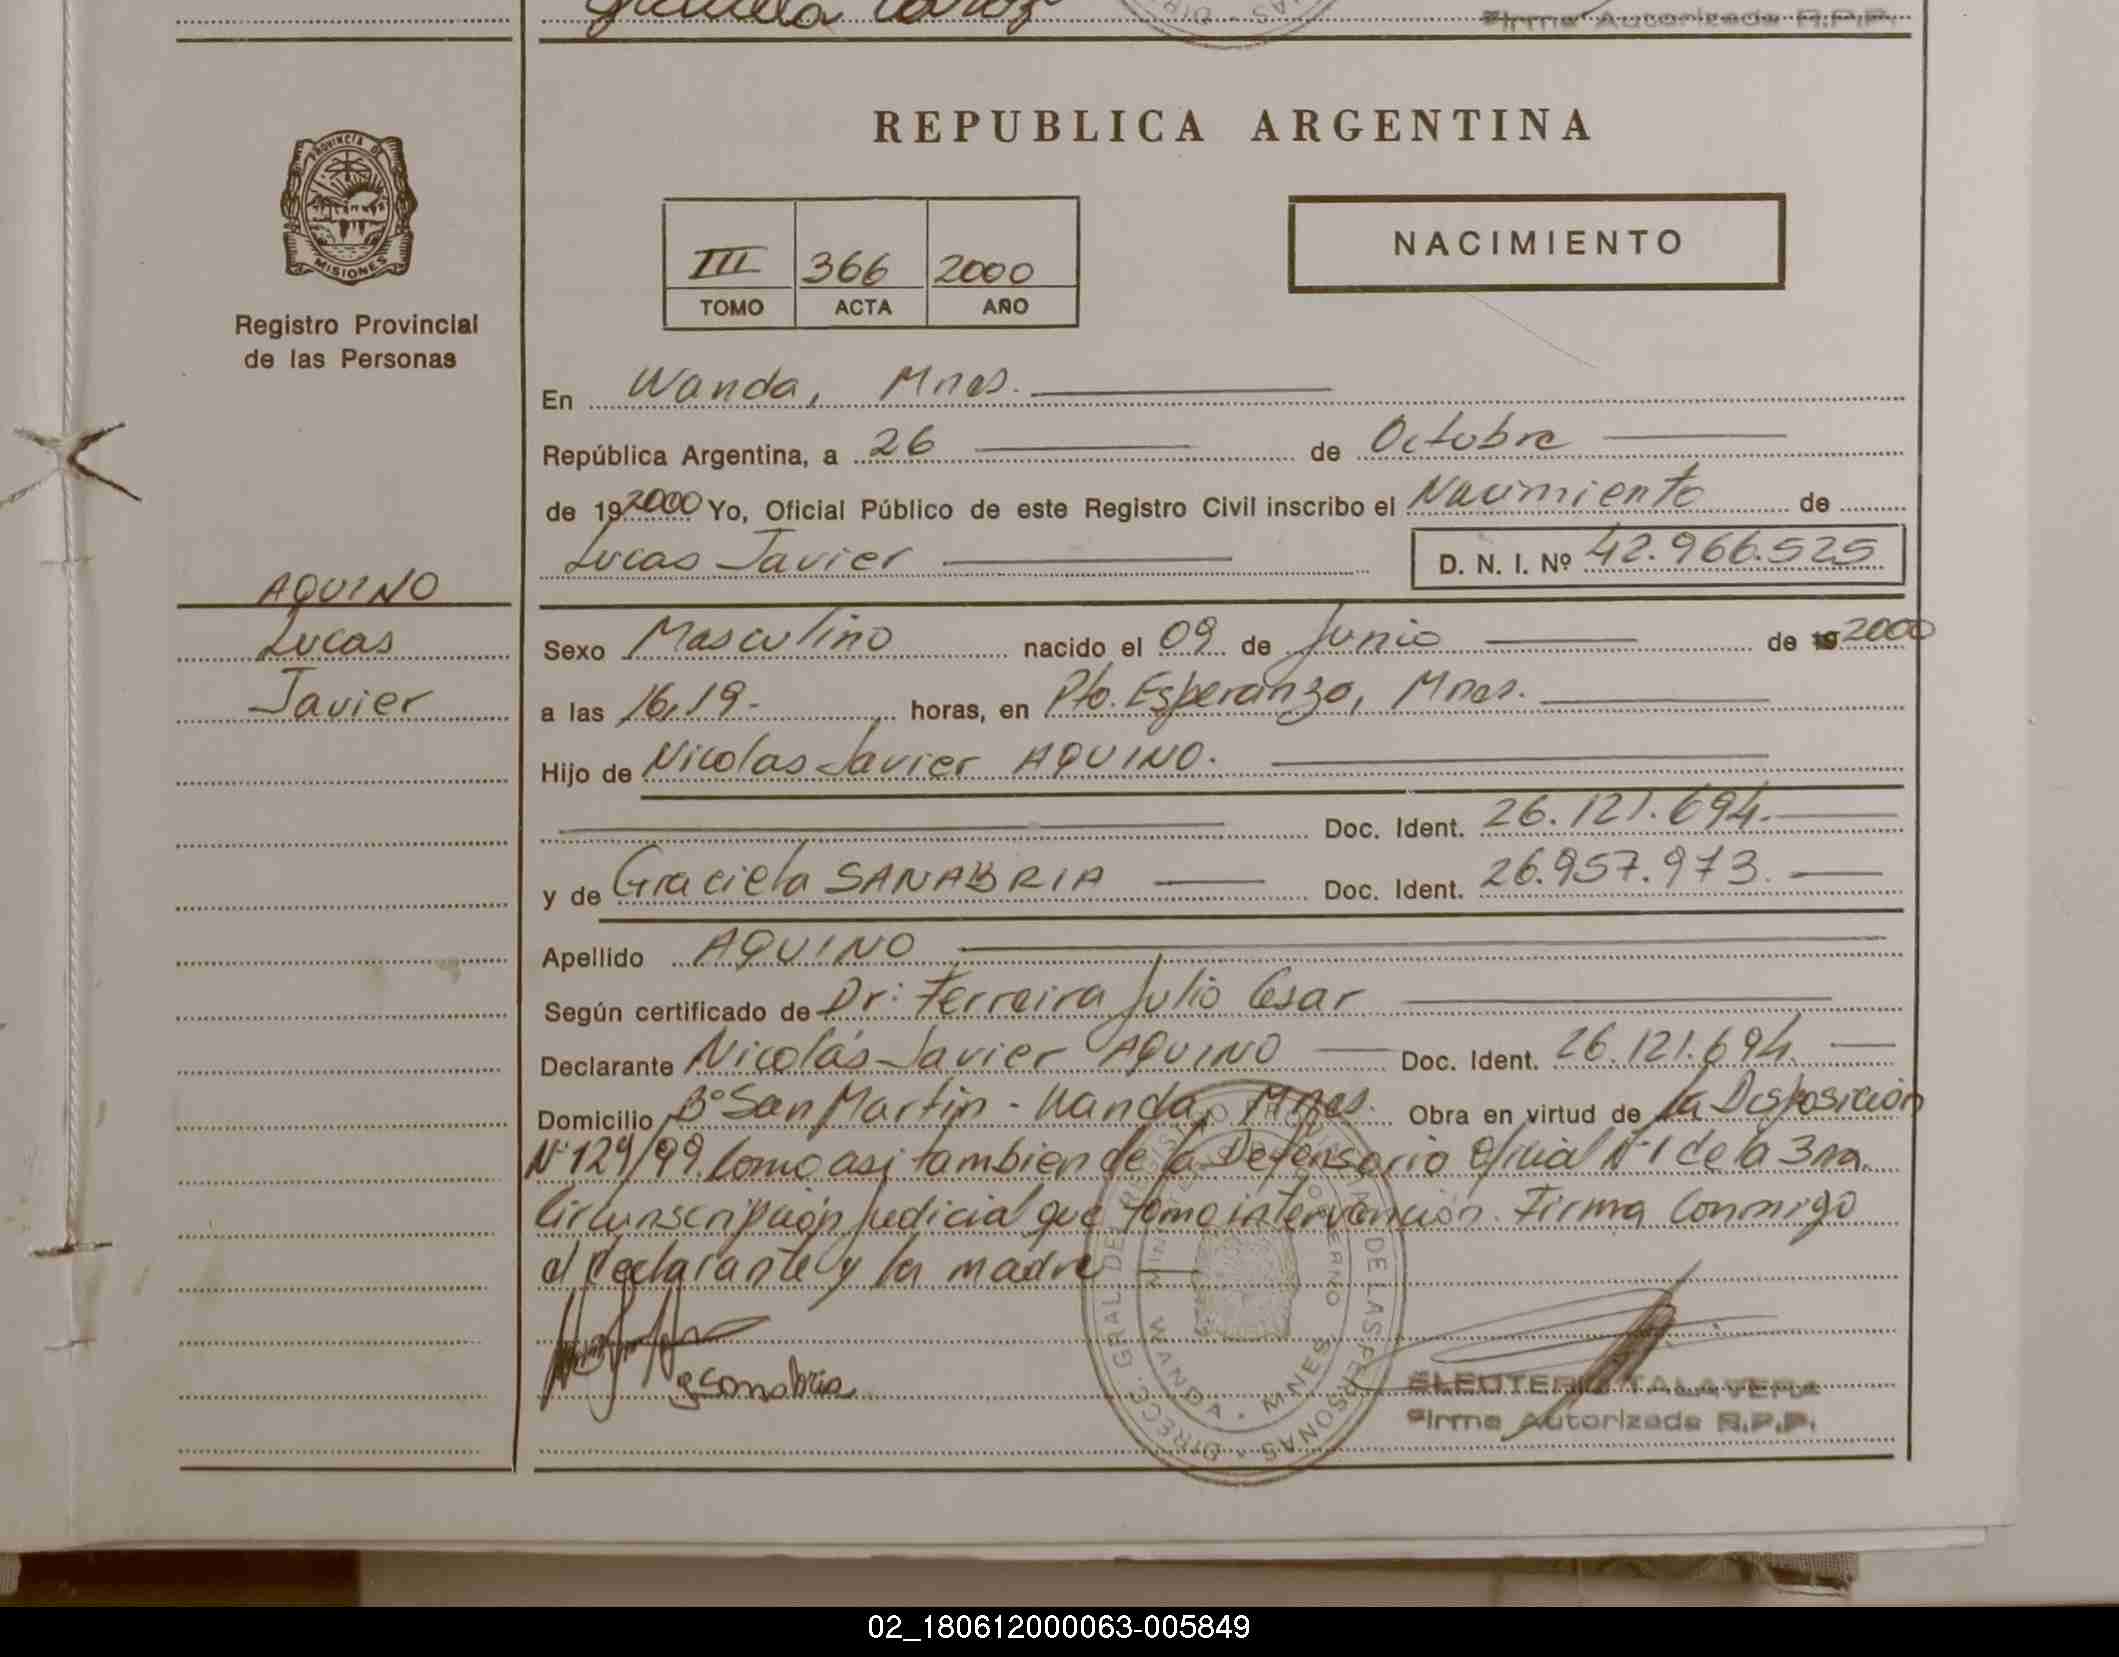 Graciela
Firma Autorizada R.P.P.
REPUBLICA ARGENTINA
PROVINCIA DE
MISIONES
Registro Provincial
de las Personas
III 366 2000
TOMO ACTA AÑO
NACIMIENTO
En Wanda, Mnes.
República Argentina, a 26 de Octubre
de 192000 Yo, Oficial Público de este Registro Civil inscribo el Nacimiento de
Lucas Javier D. N. I. Nº 42.966.525
AQUINO
Lucas
Javier
Sexo Masculino nacido el 09 de Junio de 19 2000
a las 16,19- horas, en Pto. Esperanza, Mnes.
Hijo de Nicolas Javier AQUINO.
Doc. Ident. 26.121.694.
y de Graciela SANABRIA Doc. Ident. 26.957.973.
Apellido AQUINO
Según certificado de Dr: Ferreira Julio Cesar
Declarante Nicolás Javier AQUINO Doc. Ident. 26.121.694.
Domicilio Bº San Martin - Wanda, Mnes. Obra en virtud de la Disposición
Nº 129/99. Como asi tambien de la Defensoria Oficial Nº 1 de la 3ra.
Circunscripción Judicial que tomo intervención. Firma Conmigo
el declarante y la madre
gsanabria
DIRECC. GRAL. DE REGISTRO PROVINCIAL DE LAS PERSONAS
WANDA - MNES
ELEUTERIO TALAVERA
Firma Autorizada R.P.P.
02_180612000063-005849